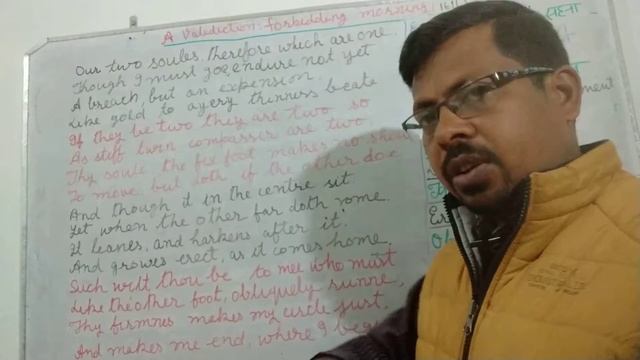 A Validiction: forbidding morning (1611)
Our two soules, therefore which are one,
Though I must goe, endure not yet
A breach, but an expension,
Like gold to ayery thinness beate
If they be two they are two so
As stiff twin compasses are two,
Thy soule the fix foot makes no show
To move, but doth if the other doe
And though it in the centre sit
Yet when the other far doth rome.
It leanes, and harkens after it
And growes erect, as it comes home.
Such wilt thou be to mee who must
Like the other foot, obliquely runne,
Thy firmnes makes my circle just,
And makes me end, where I begu
ment